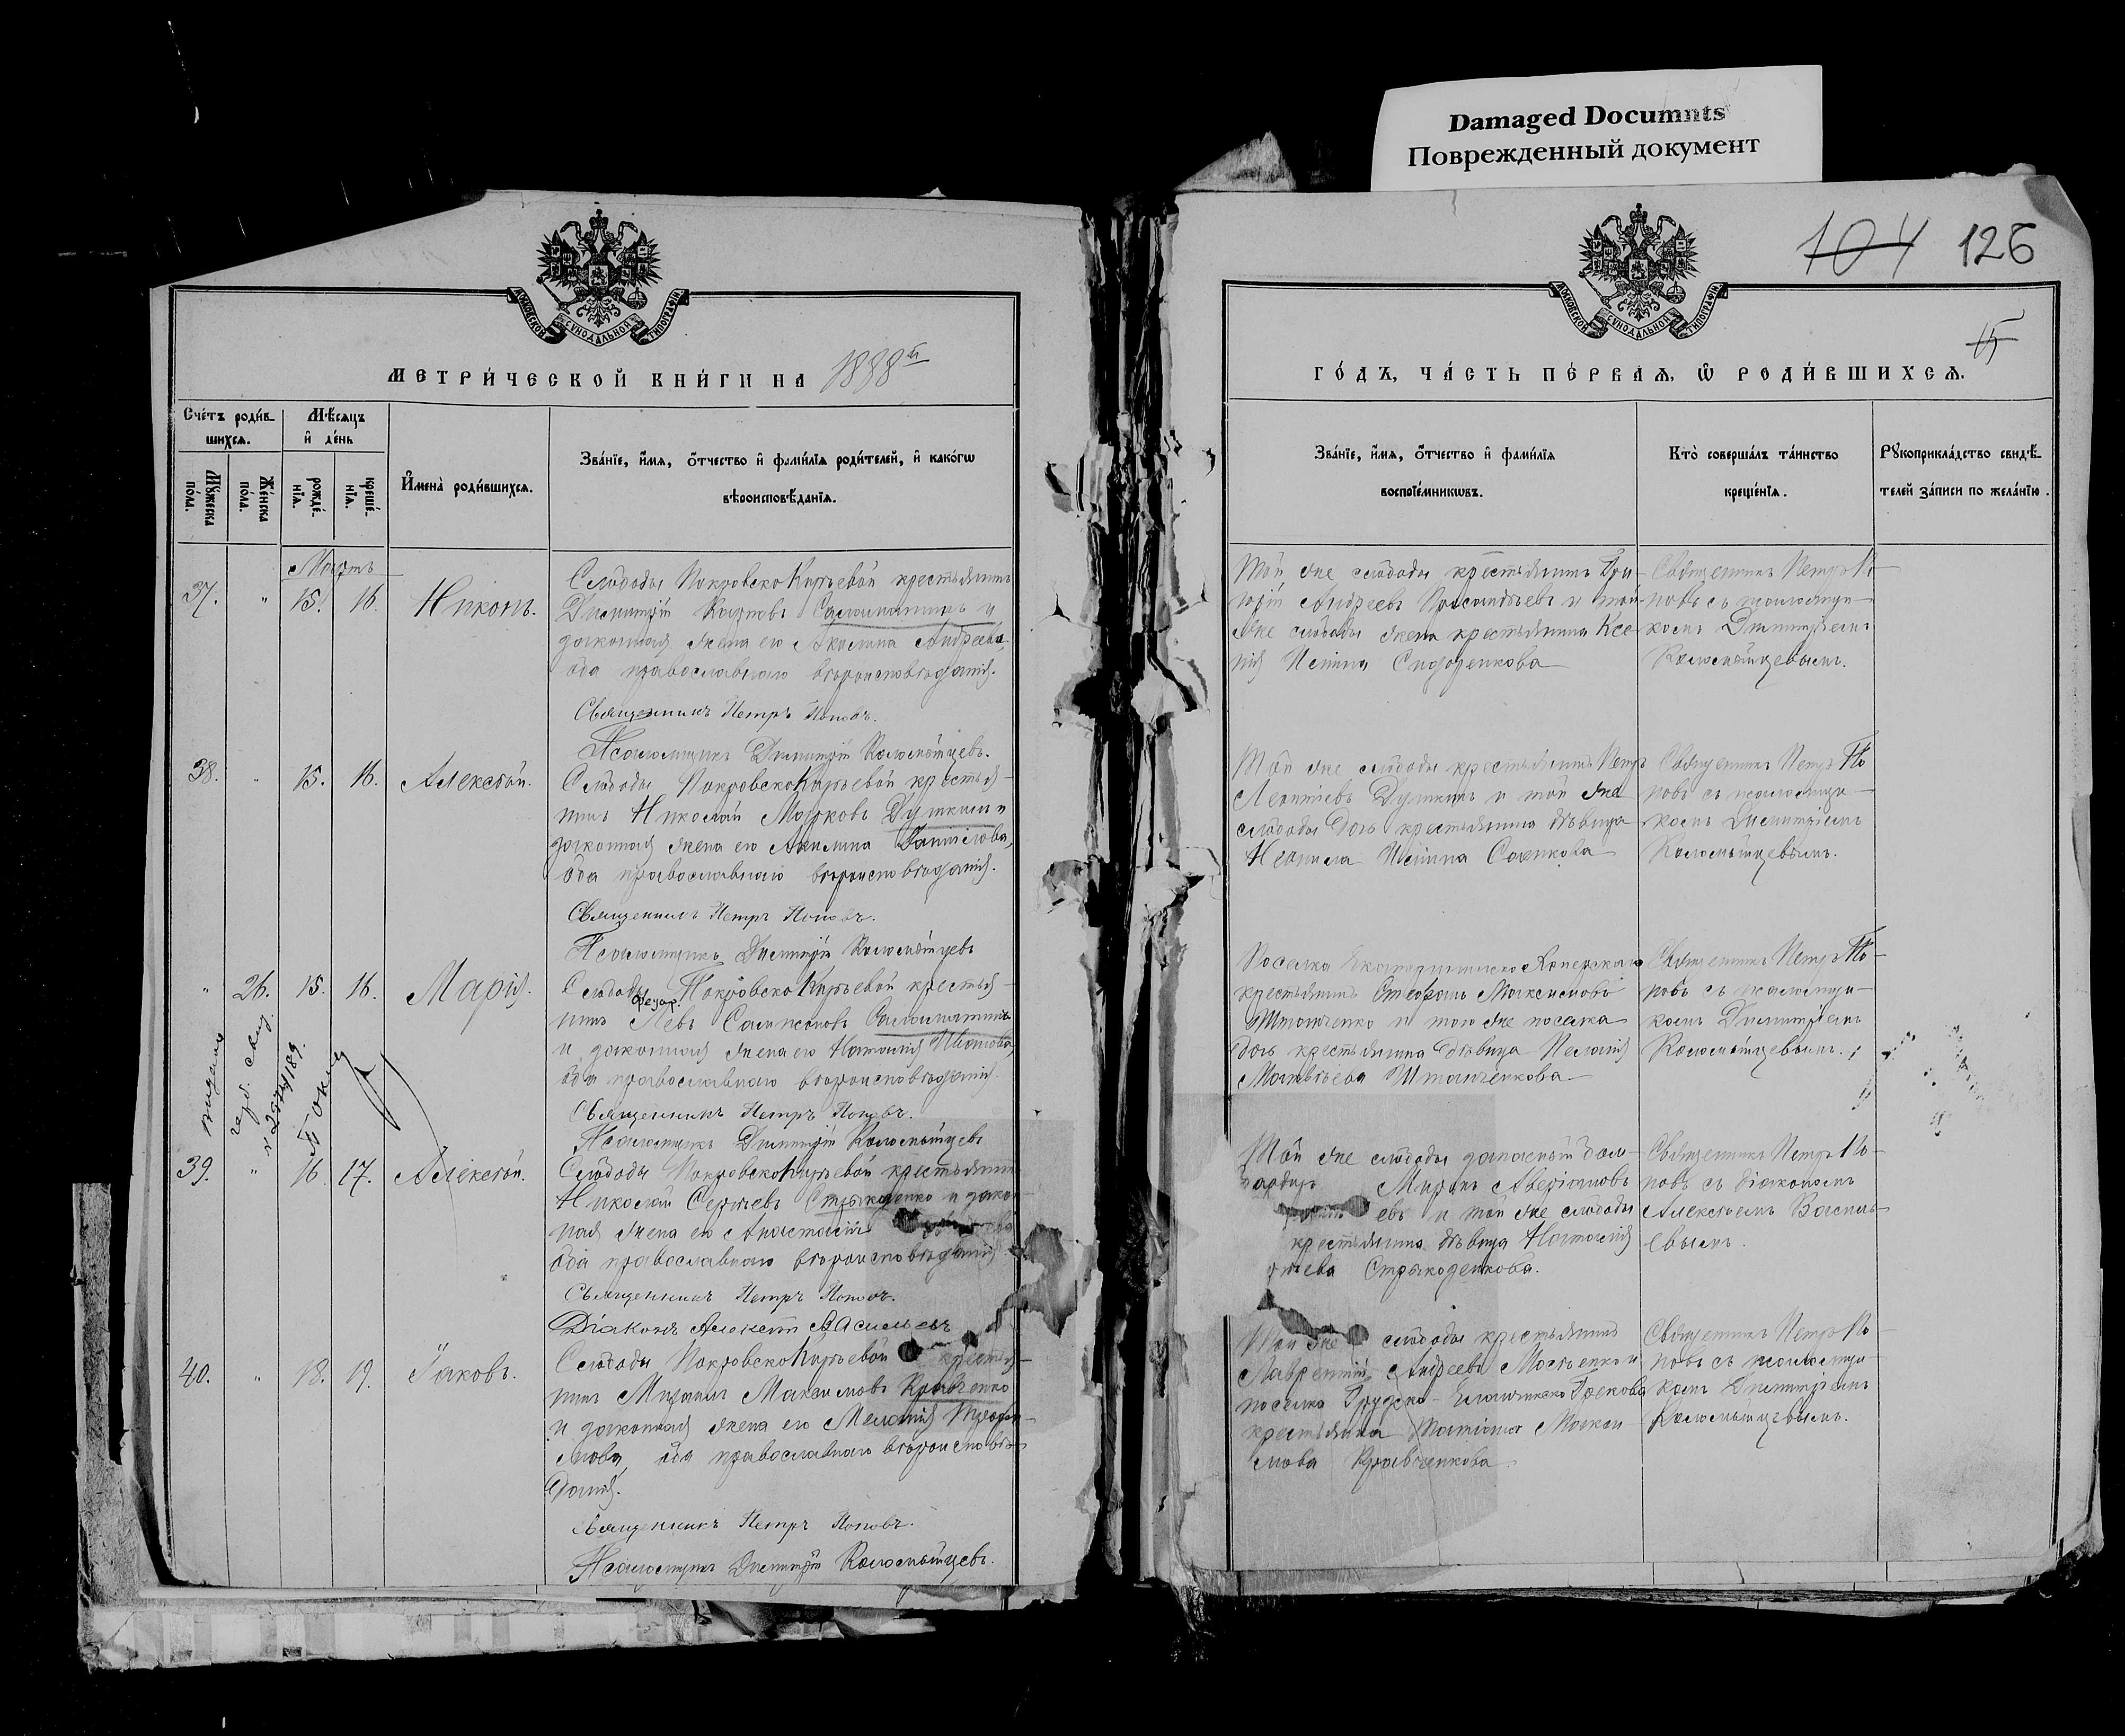 Damaged Documnts
Поврежденный документ
104 126
15
МОСКОВСКОЙ СУНОДАЛЬНОЙ ТИПОГРАФІИ
МОСКОВСКОЙ СУНОДАЛЬНОЙ ТИПОГРАФІИ
МЕТРИ́ЧЕСКОЙ КНИ́ГИ НА 1888й
ГО́ДЪ, ЧА́СТЬ ПЕ́РВАЯ, Ѡ РОДИ́ВШИХСЯ.
Сче́тъ роди́в-
шихся.
Мѣ́сяцъ
и҆ де́нь
Мꙋ́жеска по́ла.
Же́нска по́ла.
рожде́-
нїя.
креще́-
нїя.
И҆мена̀ роди́вшихся.
Зва́нїе, и҆́мя, ѻ҆́тчество и҆ фами́лїя роди́телей, и҆ како́гѡ
вѣроисповѣ́данїя.
Зва́нїе, и҆́мя, ѻ҆́тчество и҆ фами́лїя
воспрїе́мникѡвъ.
Кто̀ соверша́лъ та́инство
креще́нїя.
Рꙋкоприкла́дство свидѣ́-
телей за́писи по жела́нїю.
Мартъ
37. " 15. 16. Никонъ.
Слободы ПокровскоКирѣевой крестьянинъ
Димитрій Карповъ Саломатинъ и
законная жена его Акилина Андреева,
оба православнаго вѣроисповѣданія.
Священникъ Петръ Поповъ.
Псаломщикъ Димитрій Коломыйцевъ.
Той же слободы крестьянинъ Гри-
горій Андреевъ и той
же слободы жена крестьянина Ксе-
нія Сидоренкова
Священникъ Петръ По-
повъ съ псаломщи-
комъ Димитріемъ
Коломыйцевымъ.
38. " 15. 16. Алексѣй.
Слободы ПокровскоКирѣевой крестья-
нинъ Николай Марковъ Душкинъ и
законная жена его Акилина Даніилова,
оба православнаго вѣроисповѣданія.
Священникъ Петръ Поповъ.
Псаломщикъ Димитрій Коломыйцевъ
Той же слободы крестьянинъ Петръ
Леонтіевъ Душкинъ и той же
слободы дочь крестьянина дѣвица
Неонила
Священникъ Петръ По
повъ съ псаломщи-
комъ Димитріемъ
Коломыйцевымъ.
" 26. 15. 16. Марія.
Слободы ПокровскоКирѣевой крестья-
нинъ Левъ Сампсоновъ Саломатинъ
и законная жена его Наталія Иванова,
оба православнаго вѣроисповѣданія
Священникъ Петръ Поповъ.
Псаломщикъ Димитрій Коломыйцевъ
Поселка
крестьянинъ Стефанъ Максимовъ
Штанченко и того же поселка
дочь крестьянина дѣвица Пелагія
Матвѣева Штанченкова
Священникъ Петръ По-
повъ съ псаломщи-
комъ Димитріемъ
Коломыйцевымъ.
39. " 16. 17. Алексѣй.
Слободы ПокровскоКирѣевой крестьянинъ
Николай Сергѣевъ и закон
ная жена его Анастасія
оба православнаго вѣроисповѣданія
Священникъ Петръ Поповъ.
Діаконъ Алексій Васильевъ
Той же слободы запасный бом-
бардиръ Миронъ Аверіановъ
евъ и той же слободы
крестьянина дѣвица Наталія
Священникъ Петръ По-
повъ съ діакономъ
Алексѣемъ Василь-
евымъ.
40. " 18. 19. Іаковъ.
Слободы ПокровскоКирѣевой крестья-
нинъ Михаилъ Максимовъ Кравченко
и законная жена его Меланія Трофи-
мова, оба православнаго вѣроисповѣ-
данія.
Священникъ Петръ Поповъ.
Псаломщикъ Димитрій Коломыйцевъ.
Той же слободы крестьянинъ
Лаврентій Андреевъ и
поселка
крестьянка Татіана Макси-
мова Кравченкова
Священникъ Петръ По-
повъ съ псаломщи-
комъ Димитріемъ
Коломыйцевымъ.